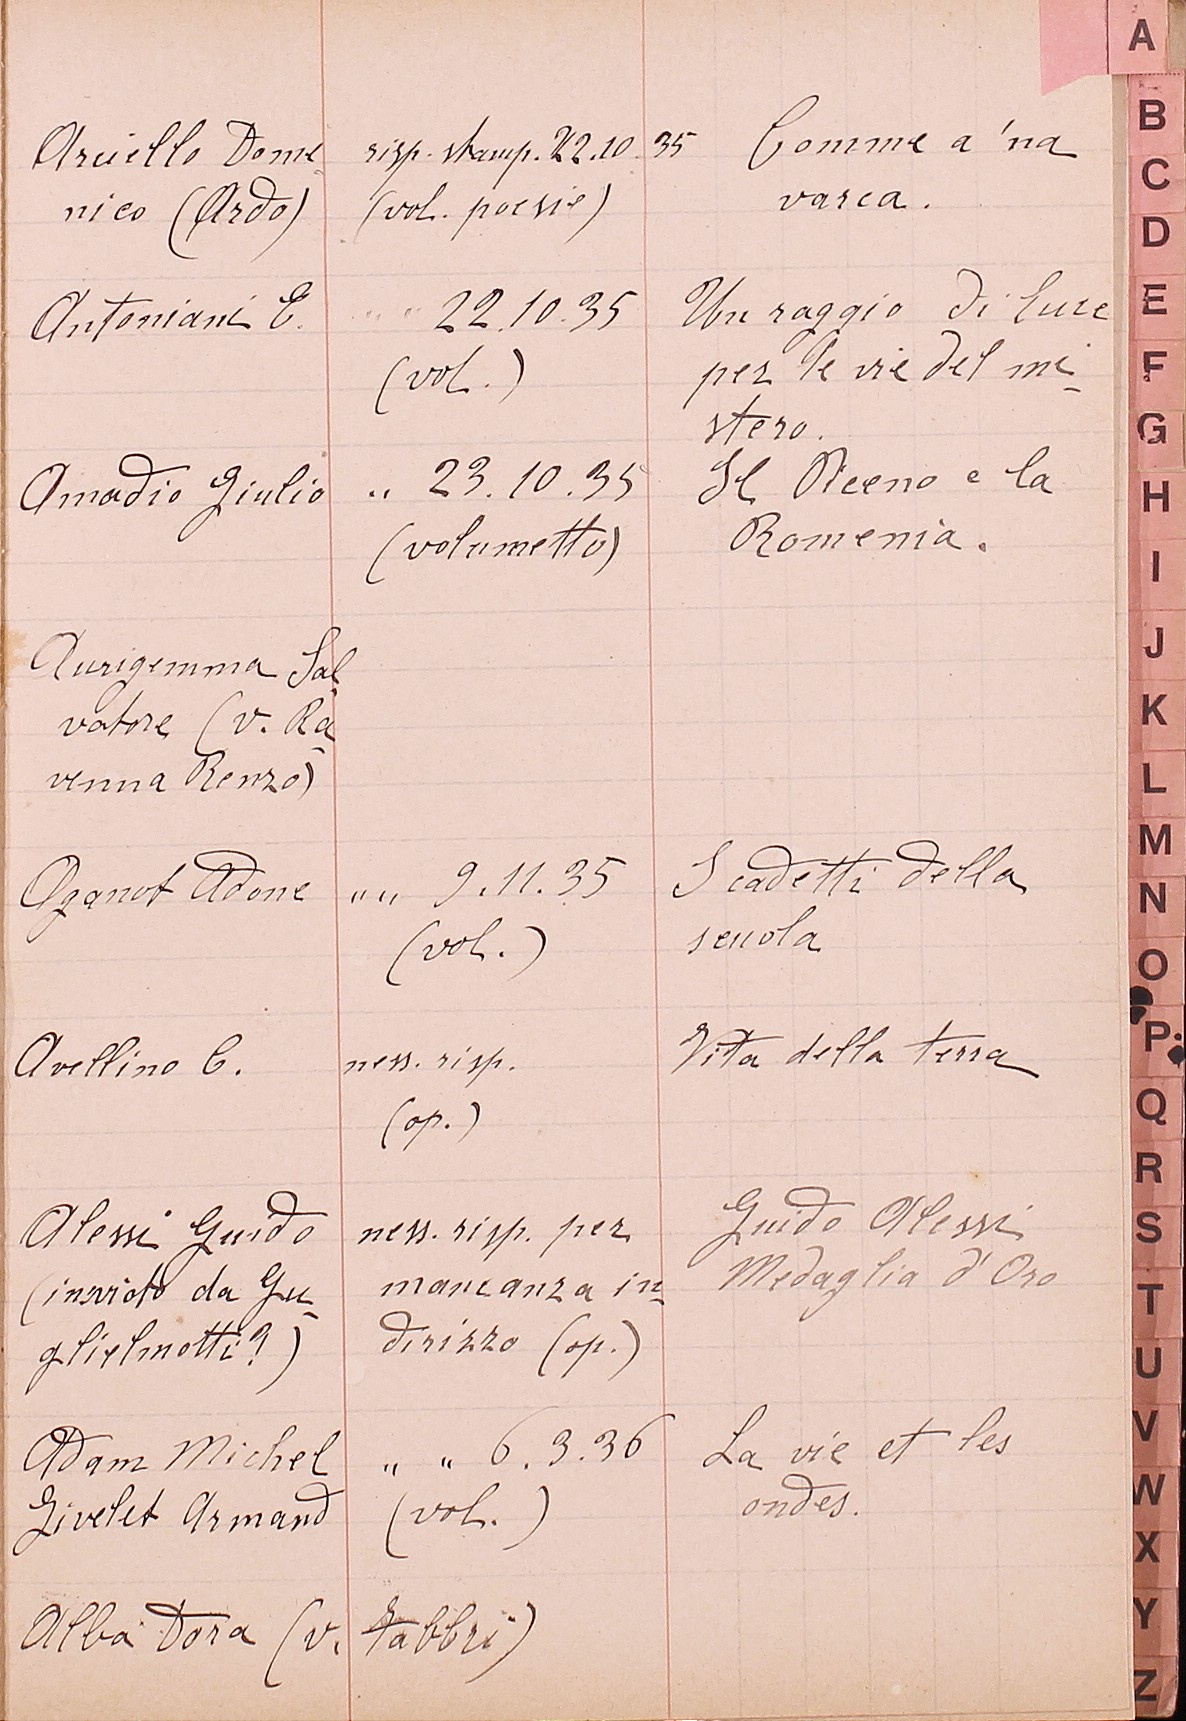 Arciello Dome
nico (Ardo)
risp. stamp. 22.10.35
(vol. poesie)
Comme a 'na
varca.
Antoniani E.
" " 22.10.35
(vol.)
Un raggio di luce
per le vie del mi-
stero.
Amadio Giulio
" 23.10.35
(volumetto)
Il Piceno e la
Romenia.
Aurigemma Sal-
vatore (v. Ra-
venna Renzo)
Adone
" " 9.11.35
(vol.)
I cadetti della
scuola
Avellino C.
ness. risp.
(op.)
Vita della terra
Alessi Guido
(inviato da Gu-
glielmotti?)
ness. risp. per
mancanza in-
dirizzo (op.)
Guido Alessi
Medaglia d'Oro
Adam Michel
Givelet Armand
" " 6.3.36
(vol.)
La vie et les
ondes.
Alba Dora (v. Fabbri)
A
B
C
D
E
F
G
H
I
J
K
L
M
N
O
P
Q
R
S
T
U
V
W
X
Y
Z